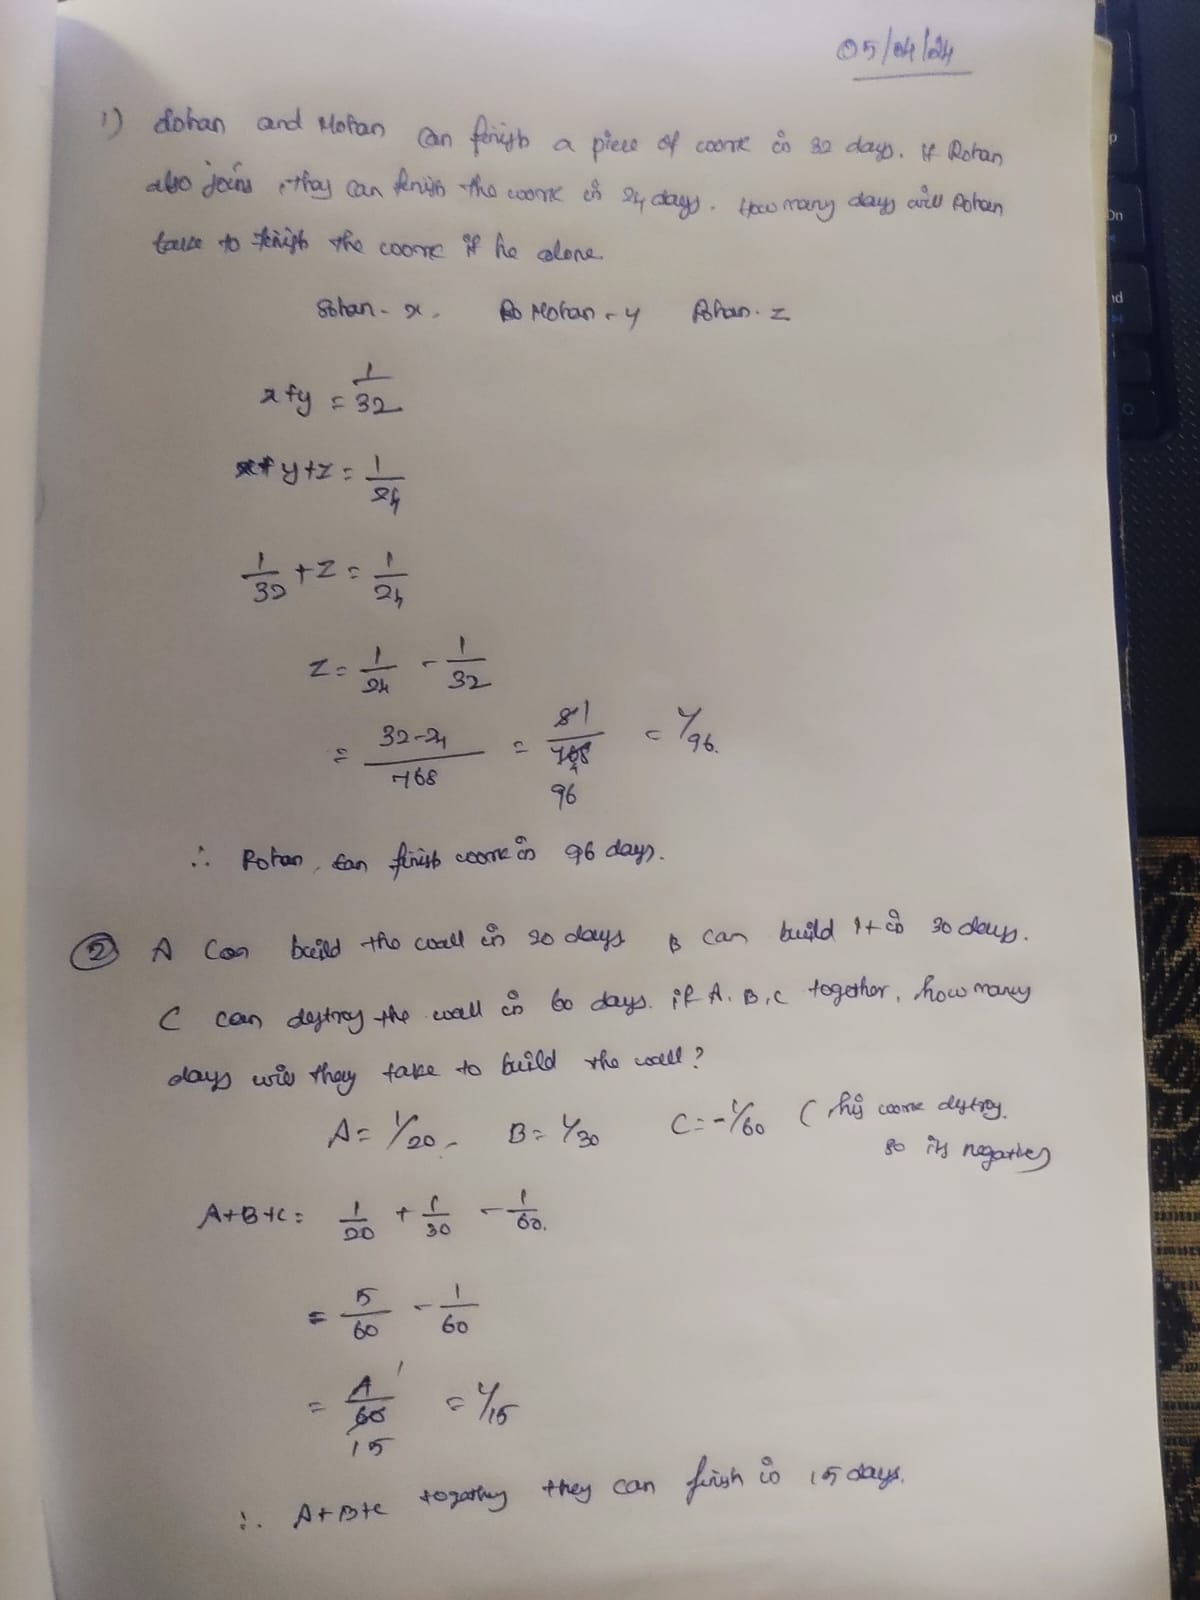 05/04/24
1) Sohan and Mohan can finish a piece of work in 32 days. If Rohan
also joins, they can finish the work in 24 days. How many days will Rohan
take to finish the work if he alone.
Sohan - x. Mohan - y Rohan - z
x+y = 1/32
x+y+z = 1/24
1/32 + z = 1/24
z = 1/24 - 1/32
= 32-24/768 = 8 1/768 96 = 1/96.
∴ Rohan can finish work in 96 days.
2) A can build the wall in 20 days B can build it in 30 days.
C can destroy the wall in 60 days. if A, B, C together, how many
days will they take to build the wall?
A = 1/20 B = 1/30 C = -1/60 ( his work destroy.
so its negative)
A+B+C = 1/20 + 1/30 - 1/60.
= 5/60 - 1/60
= 4 1/60 15 = 1/15
∴ A+B+C together they can finish in 15 days.